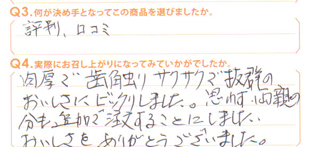 Q3.何が決め手となってこの商品を選びましたか。
評判、口コミ
Q4.実際にお召し上がりになってみていかがでしたか。
肉厚で歯触りサクサクで抜群の
おいしさにビックリしました。思わず両親の
分も追加で注文することにしました。
おいしさをありがとうございました。